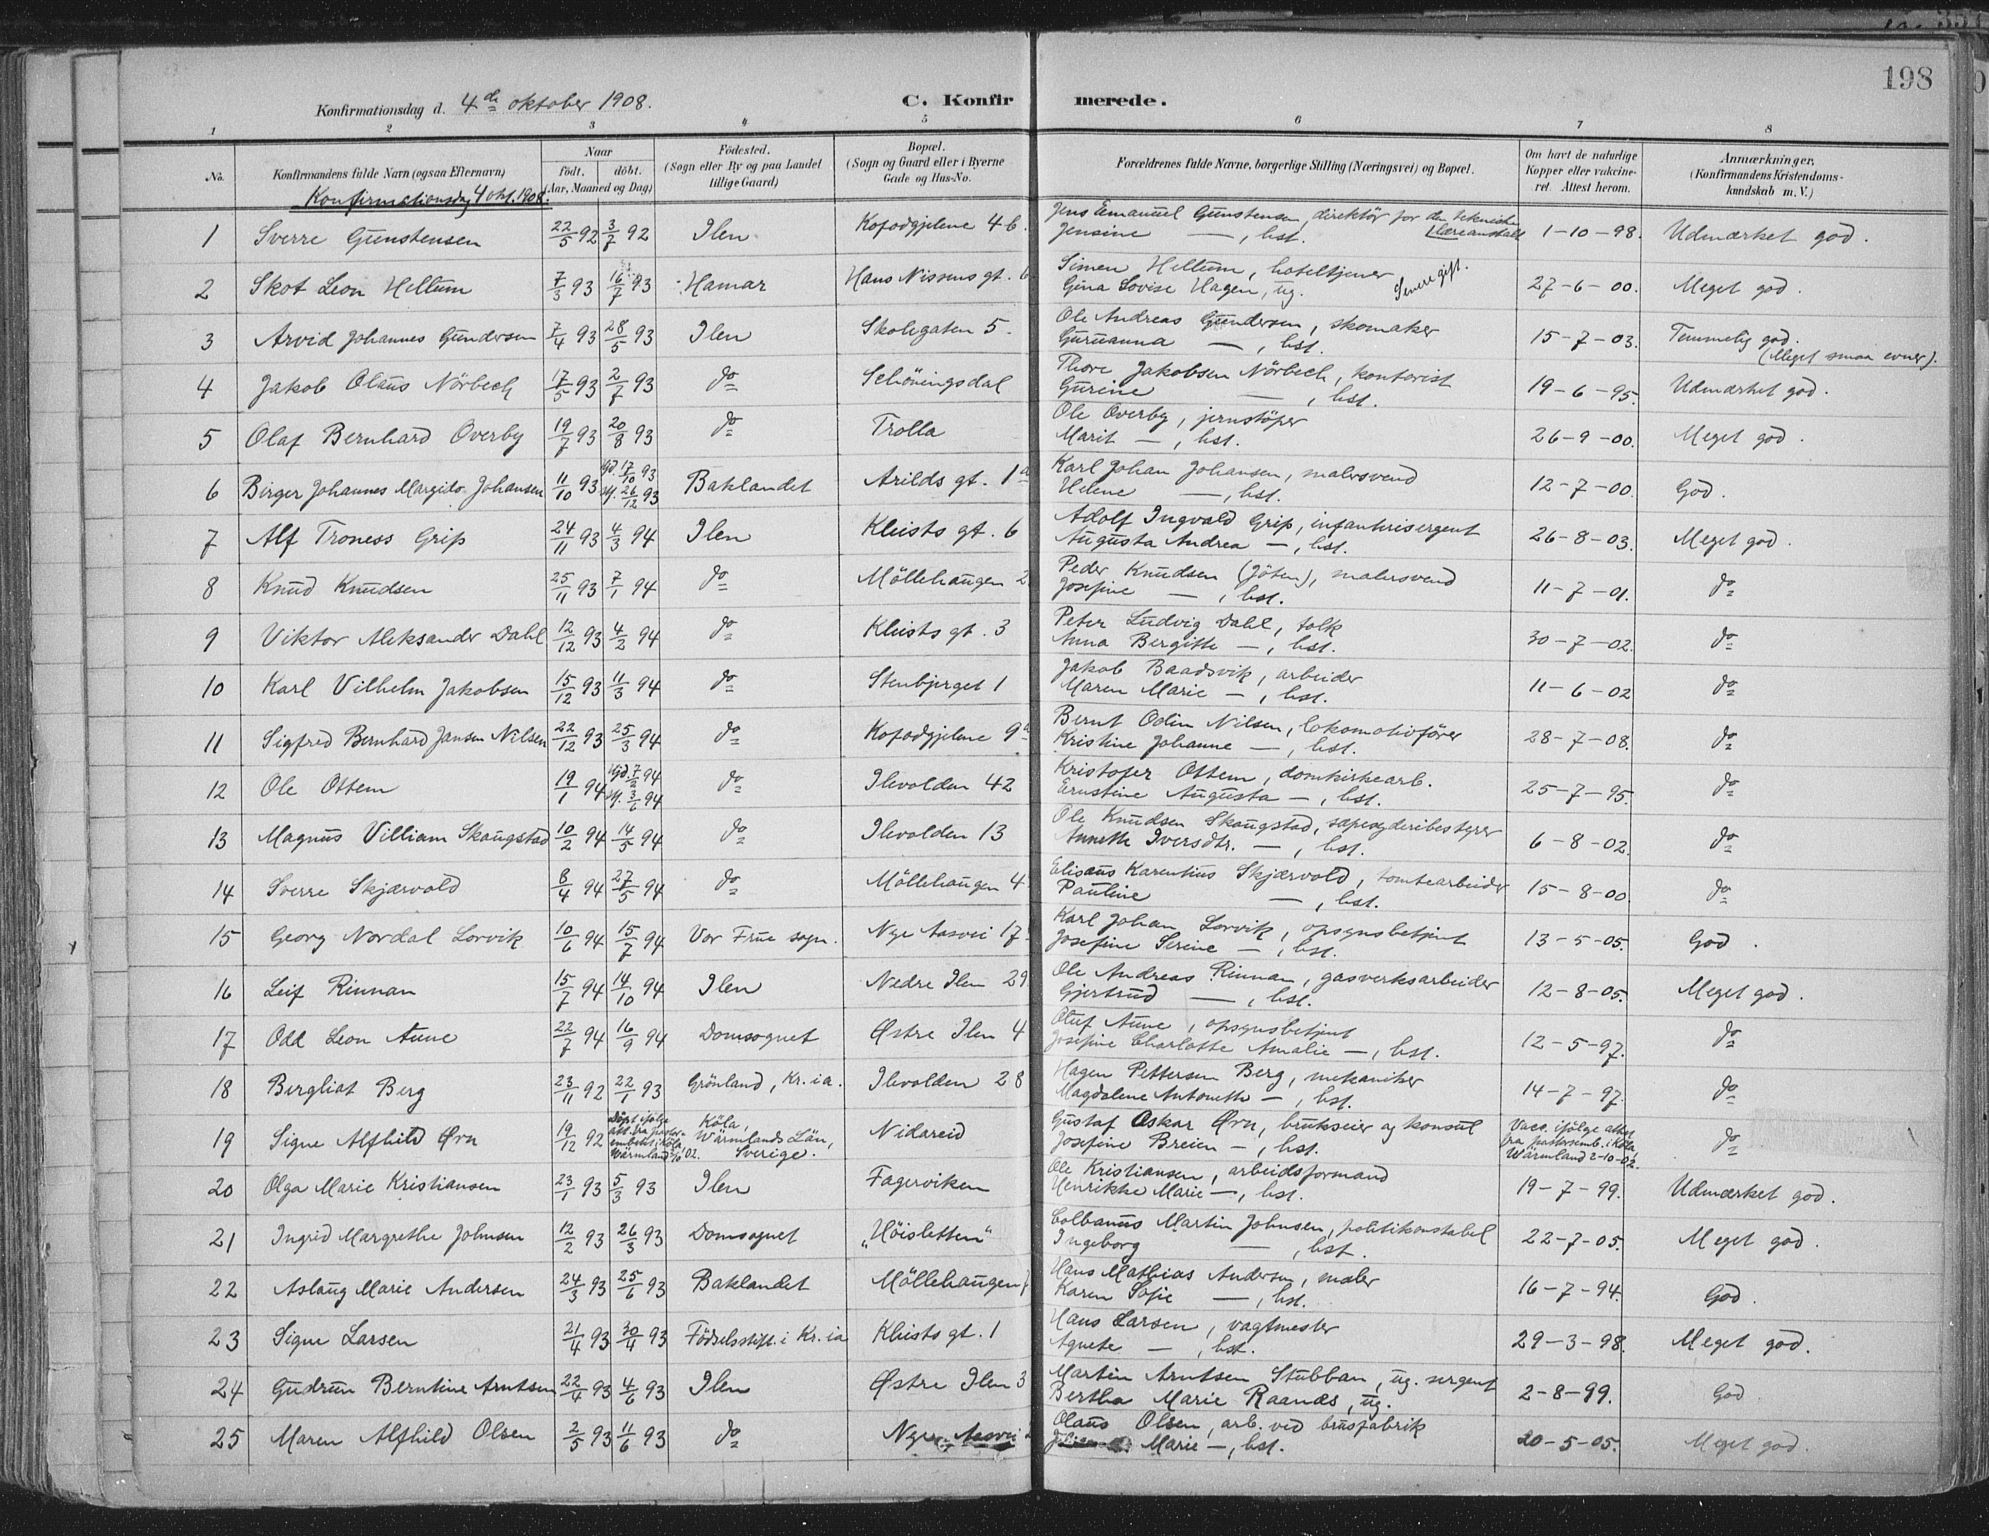 198
Konfirmationsdag d. 4de oktober 1908. C. Konfirmerede.
1 2 3 4 5 6 7 8
No. Konfirmandens fulde Navn (ogsaa Efternavn) Naar født. døbt. (Aar, Maaned og Dag) Födested. (Sogn eller By og paa Landet tillige Gaard) Bopæl. (Sogn og Gaard eller i Byerne Gade og Hus-No. Forældrenes fulde Navne, borgerlige Stilling (Næringsvei) og Bopæl. Om havt de naturlige Kopper eller vaccineret. Attest herom. Anmærkninger. (Konfirmandens Kristendomskundskab m. V.)
Konfirmationsdag 4 okt. 1908.
1 Sverre Gunstensen 22/5 92 3/7 92 Ilen Kofodgjelene 46. Jens Emanuel Gunstensen, direktör for den tekniske læreanstalt
Jensine —, hst. 1-10-98. Udmærket god.
2 Skot Leon Hellum 7/3 93 16/7 93 Hamar Hans Nissens gt. 6 Simen Hellum, hoteltjener
Gina Lovise Hagen, ug. Senere gift. 27-6-00. Meget god.
3 Arvid Johannes Gundersen 7/4 93 28/5 93 Ilen Skolegaten 5. Ole Andreas Gundersen, skomaker
Guruanna —, hst. 15-7-03. Temmelig god.
(Meget smaa evner).
4 Jakob Olaus Nörbech 17/5 93 2/7 93 do Schöningsdal Thore Jakobsen Nörbech, kontorist
Gurine —, hst. 19-6-95. Udmærket god.
5 Olaf Bernhard Overby 19/7 93 20/8 93 do Trolla Ole Overby, jernstöper
Marit —, hst. 26-9-00. Meget god.
6 Birger Johannes Margido Johansen 11/10 93 hjd. 17/10 93 st. 26/12 93 Baklandet Arilds gt. 1a Karl Johan Johansen, malersvend
Helene —, hst. 12-7-00. God.
7 Alf Troness Grip 24/11 93 4/3 94 Ilen Kleists gt. 6 Adolf Ingvald Grip, infanterisergent
Augusta Andrea —, hst. 26-8-03. Meget god.
8 Knud Knudsen 25/11 93 7/1 94 do Möllehaugen 2 Peder Knudsen (Jöten), malersvend
Josefine —, hst. 11-7-01. do
9 Viktor Aleksander Dahl 12/12 93 4/2 94 do Kleists gt. 3 Peter Ludvig Dahl, tolk
Anna Bergitte —, hst. 30-7-02. do
10 Karl Vilhelm Jakobsen 15/12 93 11/3 94 do Stenbjerget 1 Jakob Baadsvik, arbeider
Maren Marie —, hst. 11-6-02 do
11 Sigfred Bernhard Jansen Nilsen 22/12 93 25/3 94 do Kofodgjelene 9a Bernt Odin Nilsen, lokomotivförer
Kristine Johanne —, hst. 28-7-08. do
12 Ole Ottem 19/1 94 hjd. 7/2 94 st. 3/6 94 do Ilevolden 42 Kristofer Ottem, domkirkearb.
Ernstine Augusta —, hst. 25-7-95. do
13 Magnus Villiam Skaugstad 10/2 94 14/5 94 do Ilevolden 13 Ole Knudsen Skaugstad, sæpesyderibestyrer
Annette Iversdtr. —, hst. 6-8-02. do
14 Sverre Skjærvold 8/4 94 27/5 94 do Möllehaugen 4 Elisæus Karentius Skjærvold, tomtearbeider
Pauline —, hst. 15-8-00. do
15 Georg Nordal Lorvik 10/6 94 15/7 94 Vor Frue sogn. Nye Aasvei 17 Karl Johan Lorvik, opsynsbetjent
Josefine Serine —, hst. 13-5-05. God.
16 Leif Rinnan 15/7 94 14/10 94 Ilen Nedre Ilen 29 Ole Andreas Rinnan, gasverksarbeider
Gjertrud —, hst. 12-8-05. Meget god.
17 Odd Leon Aune 22/7 94 16/9 94 Domsognet Østre Ilen 4 Oluf Aune, opsynsbetjent
Josefine Charlotte Amalie —, hst. 12-5-97. do
18 Bergliot Berg 23/11 92 22/1 93 Grönland, Kr.ia. Ilevolden 28 Hagen Pettersen Berg, mekaniker
Magdalene Antonette —, hst. 14-7-97. do
19 Signe Alfhild Ørn 19/12 92 Döpt ifölge att. fra pastorembetet i Köla, Wärmland 2/10 02. Köla, Wärmlands Län, Sverige. Nidareid Gustaf Oskar Ørn, brukseier og konsul
Josefine Breien —, hst. Vacc. ifölge attest fra pastoremb. i Köla, Wärmland 2-10-02. do
20 Olga Marie Kristiansen 23/1 93 5/3 93 Ilen Fagerviken Ole Kristiansen, arbeidsformand
Henrikke Marie —, hst. 19-7-99. Udmærket god.
21 Ingrid Margrethe Johnsen 12/2 93 26/3 93 Domsognet „Höisletten" Colbanus Martin Johnsen, politikonstabel
Ingeborg —, hst. 22-7-05. Meget god.
22 Aslaug Marie Andersen 24/3 93 25/6 93 Baklandet Möllehaugen Hans Mathias Andersen, maler
Karen Sofie —, hst. 16-7-94. God.
23 Signe Larsen 21/4 93 30/4 93 Födselsstift. i Kr.ia Kleists gt. 1 Hans Larsen, vagtmester
Agnete —, hst. 29-3-98. Meget god.
24 Gudrun Berntine Arntsen 22/4 93 4/6 93 Ilen Østre Ilen 3 Martin Arntsen Stubban, ug. sergent
Bertha Marie Raanes, ug. 2-8-99. God.
25 Maren Alfhild Olsen 2/5 93 11/6 93 do Nye Aasvei Olaus Olsen, arb. ved brusfabrik
Marie —, hst. 20-5-05. Meget god.